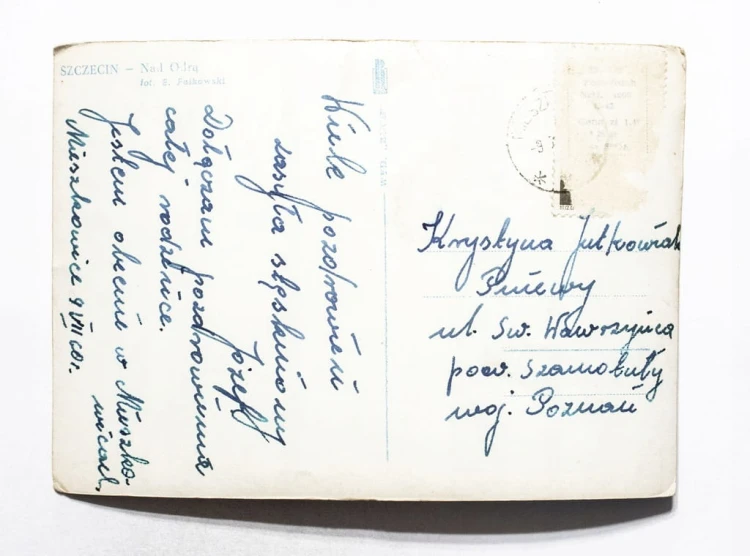 SZCZECIN — Nad Odrą
fot. S. Falkowski
Wiele pozdrowień
zasyła stęskniony
Józef
Dołączam pozdrowienia
całej rodzince.
Jestem obecnie w Mieszko-
wicach.
Mieszkowice 9 VII 60 r.
Krystyna Jutkowiak
Pniewy
ul. Św. Wawrzyńca
pow. Szamotuły
woj. Poznań